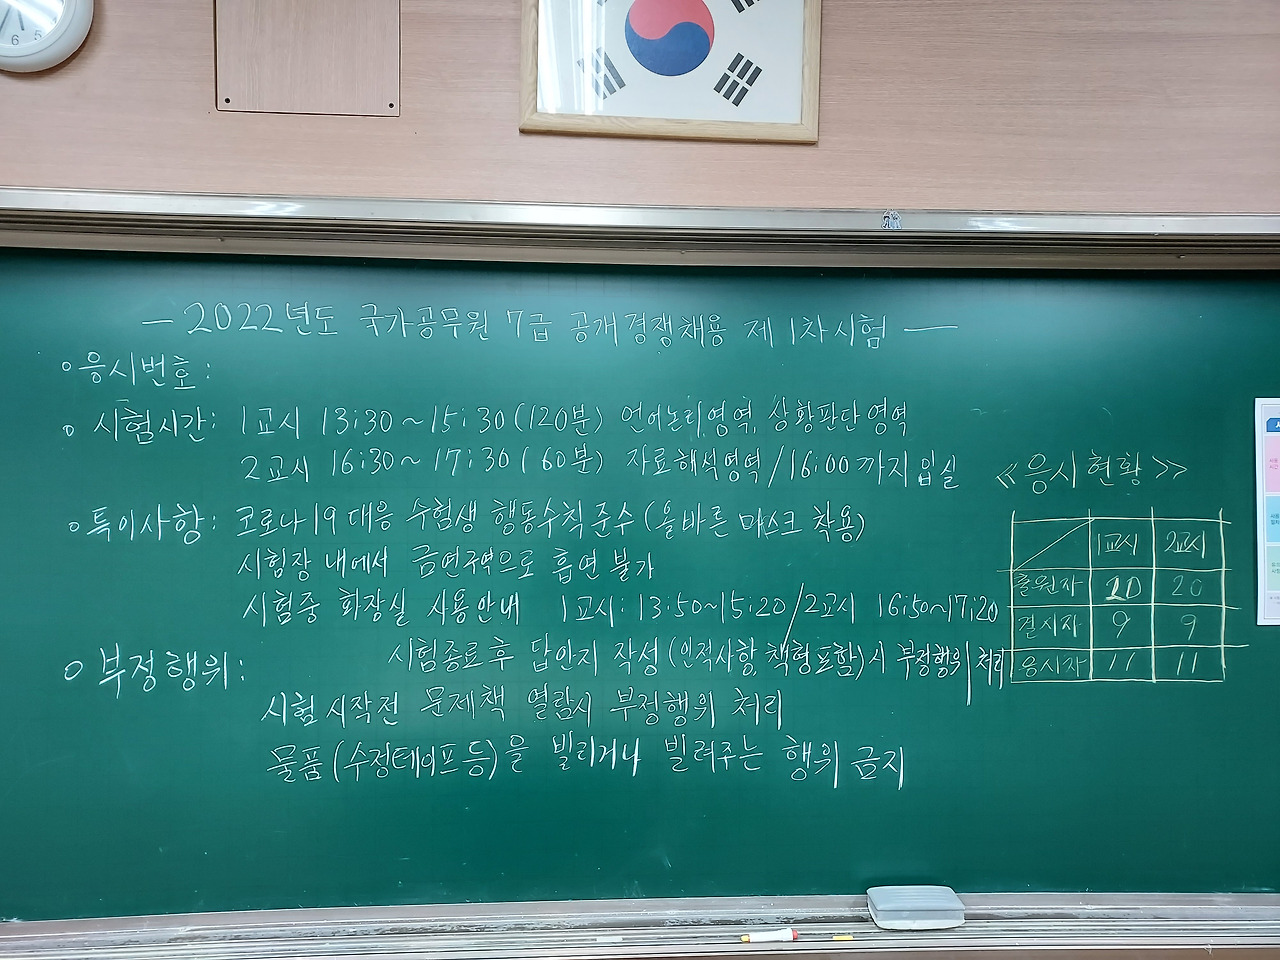 - 2022년도 국가공무원 7급 공개경쟁채용 제1차시험 -
○ 응시번호:
○ 시험시간: 1교시 13:30~15:30(120분) 언어논리영역, 상황판단영역
2교시 16:30~17:30(60분) 자료해석영역/16:00까지 입실
○ 특이사항: 코로나19 대응 수험생 행동수칙 준수(올바른 마스크 착용)
시험장 내에서 금연구역으로 흡연 불가
시험중 화장실 사용안내 1교시: 13:50~15:20/2교시 16:50~17:20
○ 부정행위: 시험종료후 답안지 작성(인적사항, 책형포함)시 부정행위 처리
시험 시작전 문제책 열람시 부정행위 처리
물품(수정테이프 등)을 빌리거나 빌려주는 행위 금지
≪응시현황≫
1교시 2교시
출원자 20 20
결시자 9 9
응시자 11 11
6 5